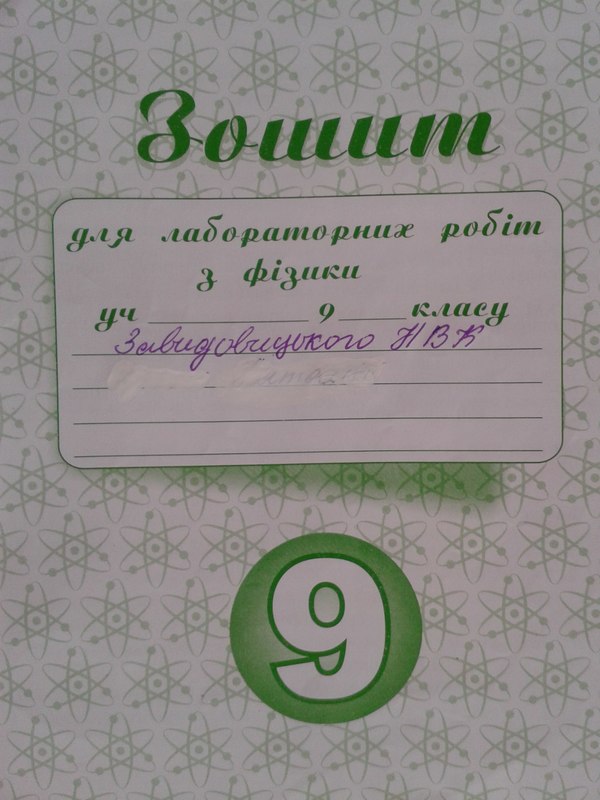 Зошит
для лабораторних робіт
з фізики
уч 9 класу
Завидовицького НВК
9